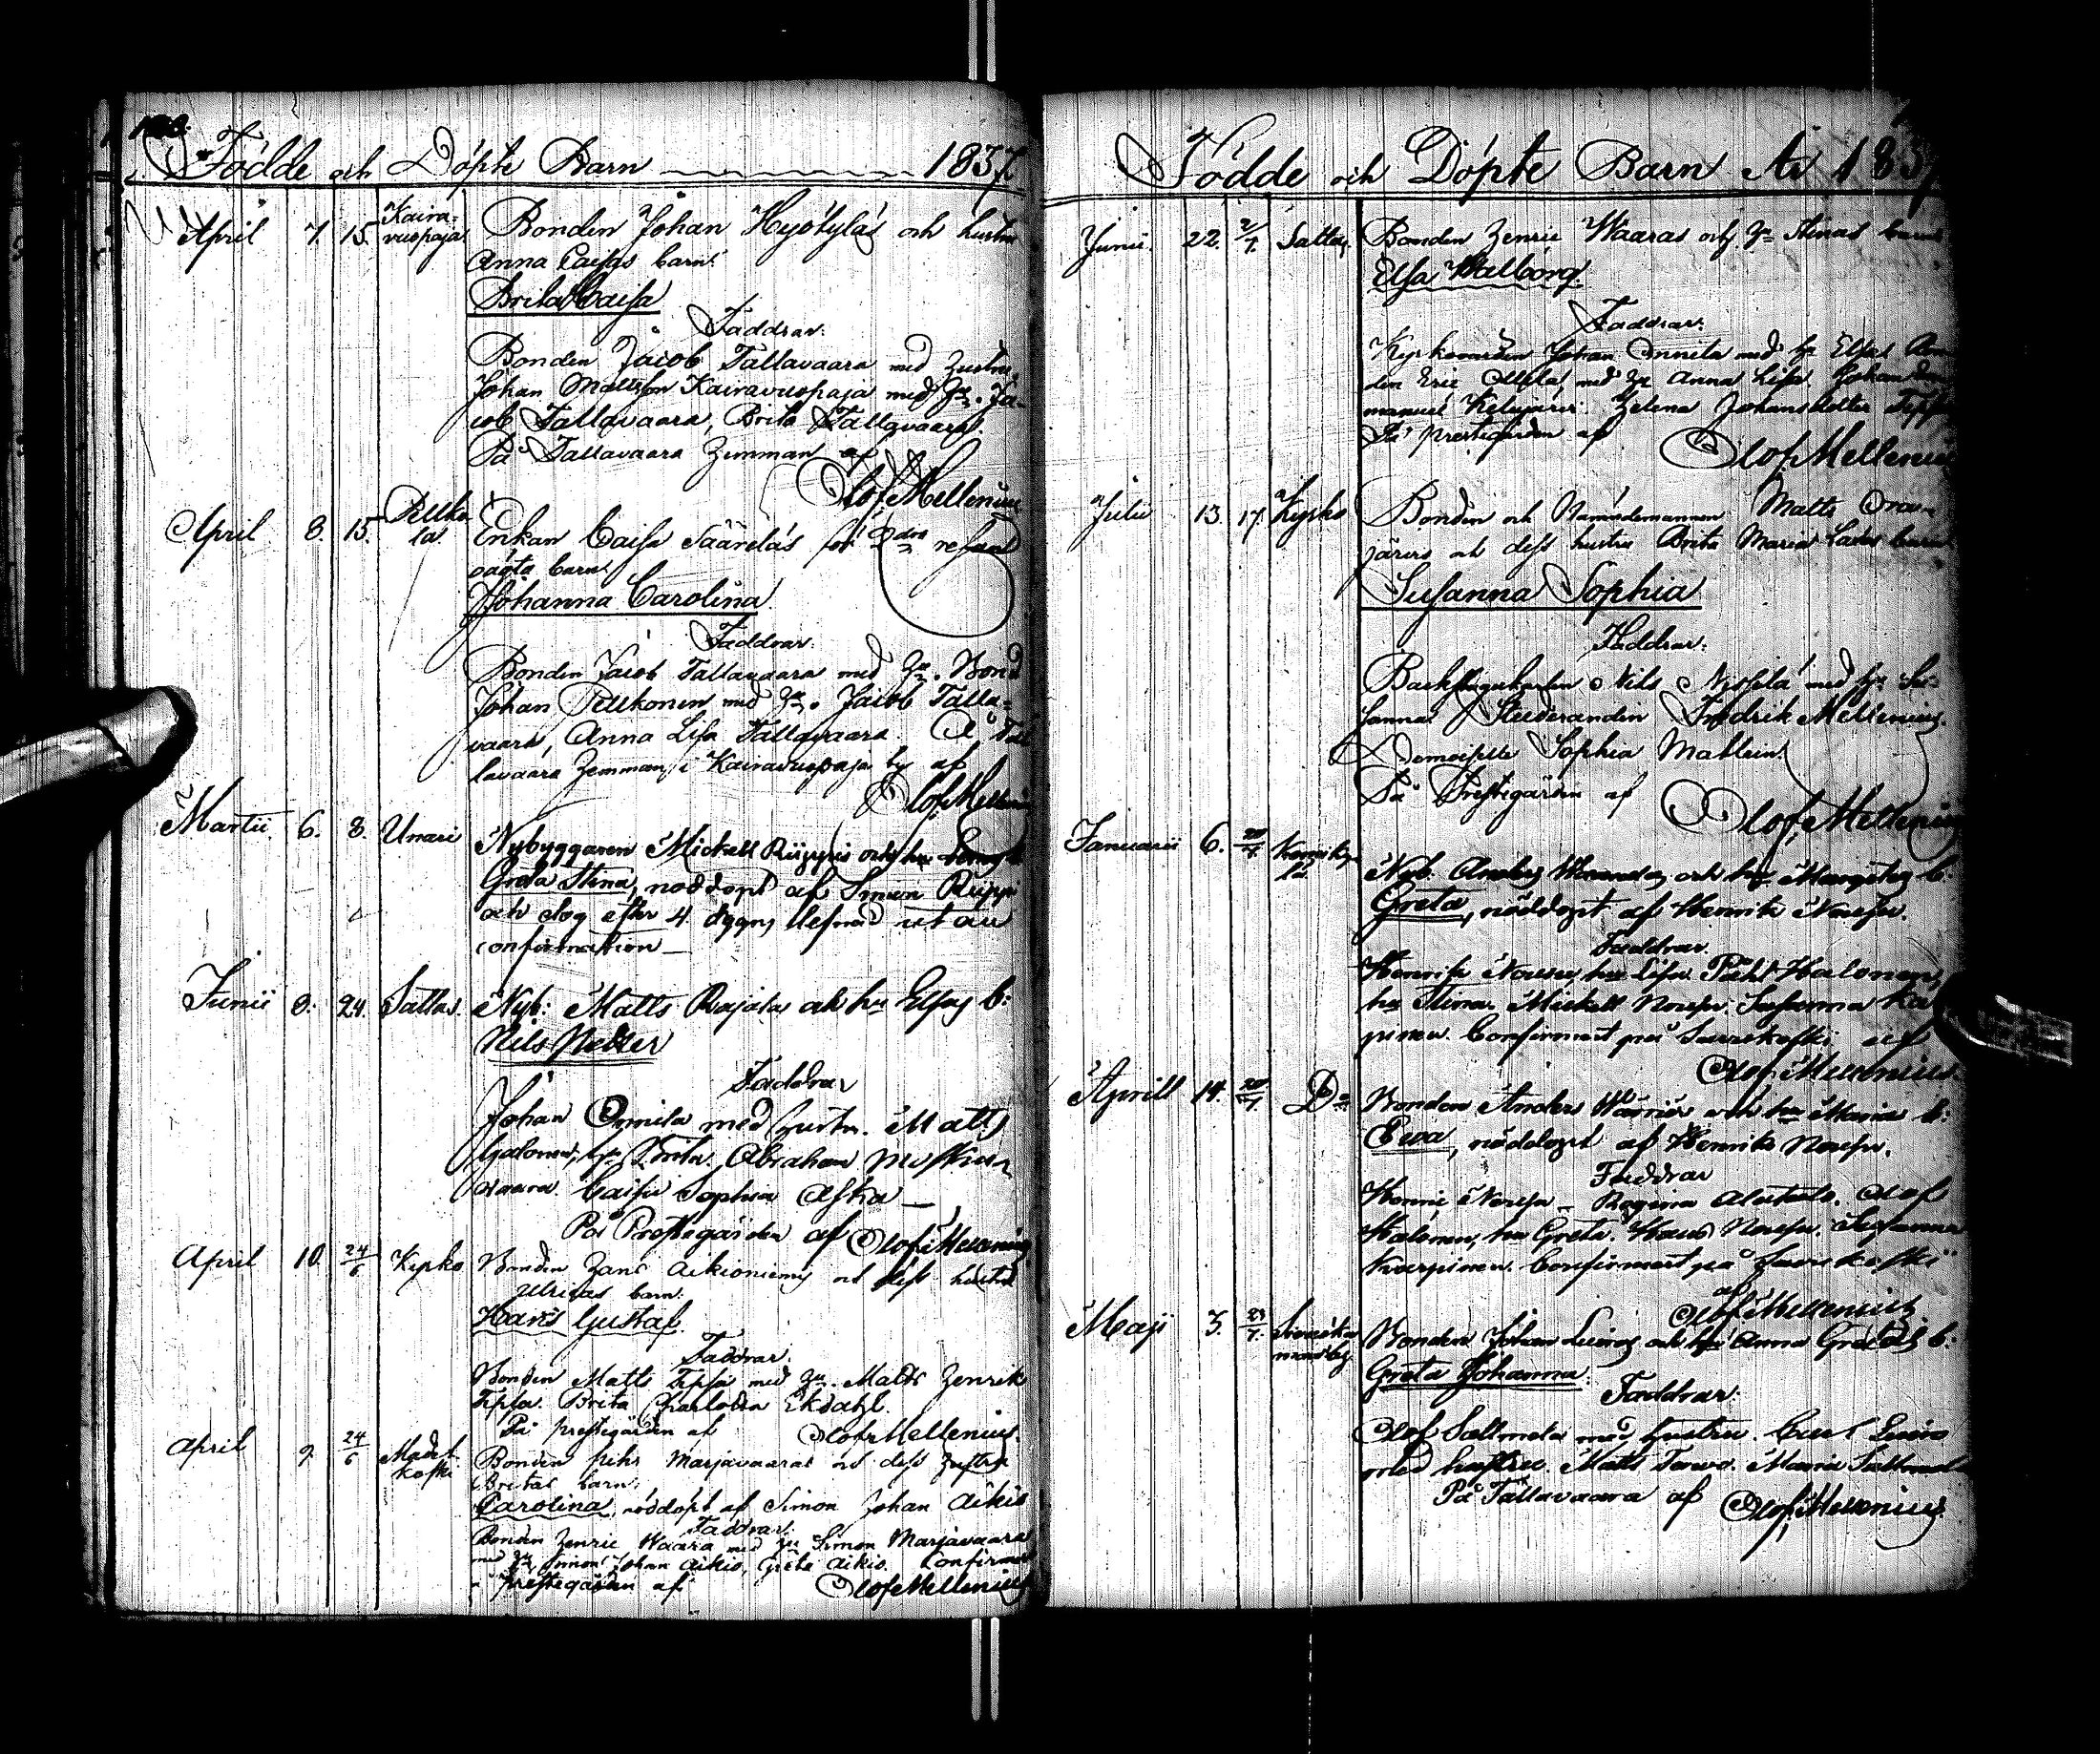 Födde och Döpte Barn 1837
April 7. 15. Kaira-
vuopaja
Bonden Johan Hyötyläs och hustru
Anna Caisas barn.
Brita Caisa
Faddrar.
Bonden Jacob Tallavaara med hustru,
Johan Mattsson Kairavuopaja med Hu. Ja-
cob Tallavaara, Brita Tallavaara.
På Tallavaara Hemman af
Olof Mellenius
April 8. 15. Pelko
la
Enkan Caisa Säärelás för
oägta barn
Johanna Carolina
Faddrar.
Bonden Jacob Tallavaara med Hu. Bond
Johan Pelkonen med Hu. Jacob Talla-
vaara, Anna Lisa Tallavaara. Å Tal
lavaara Hemman i Kairavuopaja by af
Olof Mellenius
Martii 6. 8. Unari
Nybyggaren Mickell Riippis och hu
Greta Stina, nöddöpt af Simon Riippi
och dog efter 4 dygns lefnad utan
confirmation
Junii 9. 24. Sattas.
Nyb: Matts Rajala och hu Elsas b:
Nils Petter
Faddrar
Johan Onnela med hustru. Matts
Halonen, hu Brita. Abraham
vaara. Caisa Sophia Aska
På Prestegården af Olof Mellenius
April 10. 24/6 Kyrko
Bonden Hans Aikioniemis och dess hustru
Ulricas barn.
Hans Gustaf.
Faddrar.
Bonden Matts Tepsa med Hu. Matts Henrik
Tepsa. Brita Charlotta Ekdahl.
På prestegården af Olof Mellenius.
April 9. 24/6 Madet
koski
Bonden Pehr Marjavaaras och dess hustru
Britas barn.
Carolina, nöddöpt af Simon Johan Aikio
Faddrar.
Bonden Henric Waara med Hu Simon Marjavaara
med Hu, Simon Johan Aikio, Greta Aikio. Confirmer
prestegården af Olof Mellenius
Födde och Döpte Barn År 1837
Junii. 22. 2/7. Sattas.
Bonden Henric Waaras och Hu Stinas barn
Elsa Walborg.
Faddrar.
Kyrkovärden Johan Onnela med hu Elsa. Bon
den Eric Allela med hu Anna Lisa. Johan
manuel Kelujärvi. Helena Johansdotter Tepsa
På prestegården af Olof Mellenius
Julii 13. 17. Kyrko
Bonden och Nämndemannen Matts Ora-
järvis och dess hustru Brita Maria barn
Susanna Sophia
Faddrar.
Backstugukarlen Nils med hu Su-
sanna. Studeranden Fredrik Mellenius.
Demoiselle Sophia Mablein.
På Prestegården af Olof Mellenius
Januarii 6. 20/7.
Nyb. och hu Margetas b:
Greta, nöddöpt af Henrik
Faddrar.
Henrik hu Lisa. Påhl Halonen,
hu Stina. Mickell Susanna Ka
pinen. Confirmert på af
Olof Mellenius.
Aprill 14. 20/7. Do
Bonden Anders och hu Maria b:
Ewa, nöddöpt af Henrik
Faddrar
Henric Regina Olof
Halonen, hu Greta. Hans Susanna
Confirmert på
af
Olof Mellenius
Maji 3. 23/7.
Bonden Johan och hu Anna Gretas b:
Greta Johanna.
Faddrar.
Olof med hustru.
med hustru. Matts Maria
På Tallavaara af Olof Mellenius.